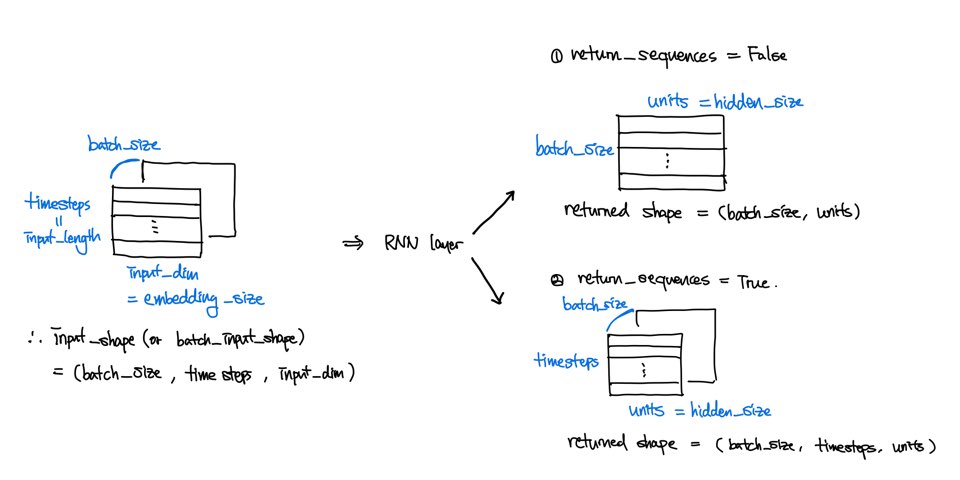 batch_size
timesteps
=
input_length
input_dim
= embedding_size
∴ Input_shape (or batch_input_shape)
= (batch_size, time steps, input_dim)
⇒ RNN layer
① return_sequences = False
units = hidden_size
batch_size
returned shape = (batch_size, units)
② return_sequences = True.
batch_size
timesteps
units = hidden_size
returned shape = (batch_size, timesteps, units)